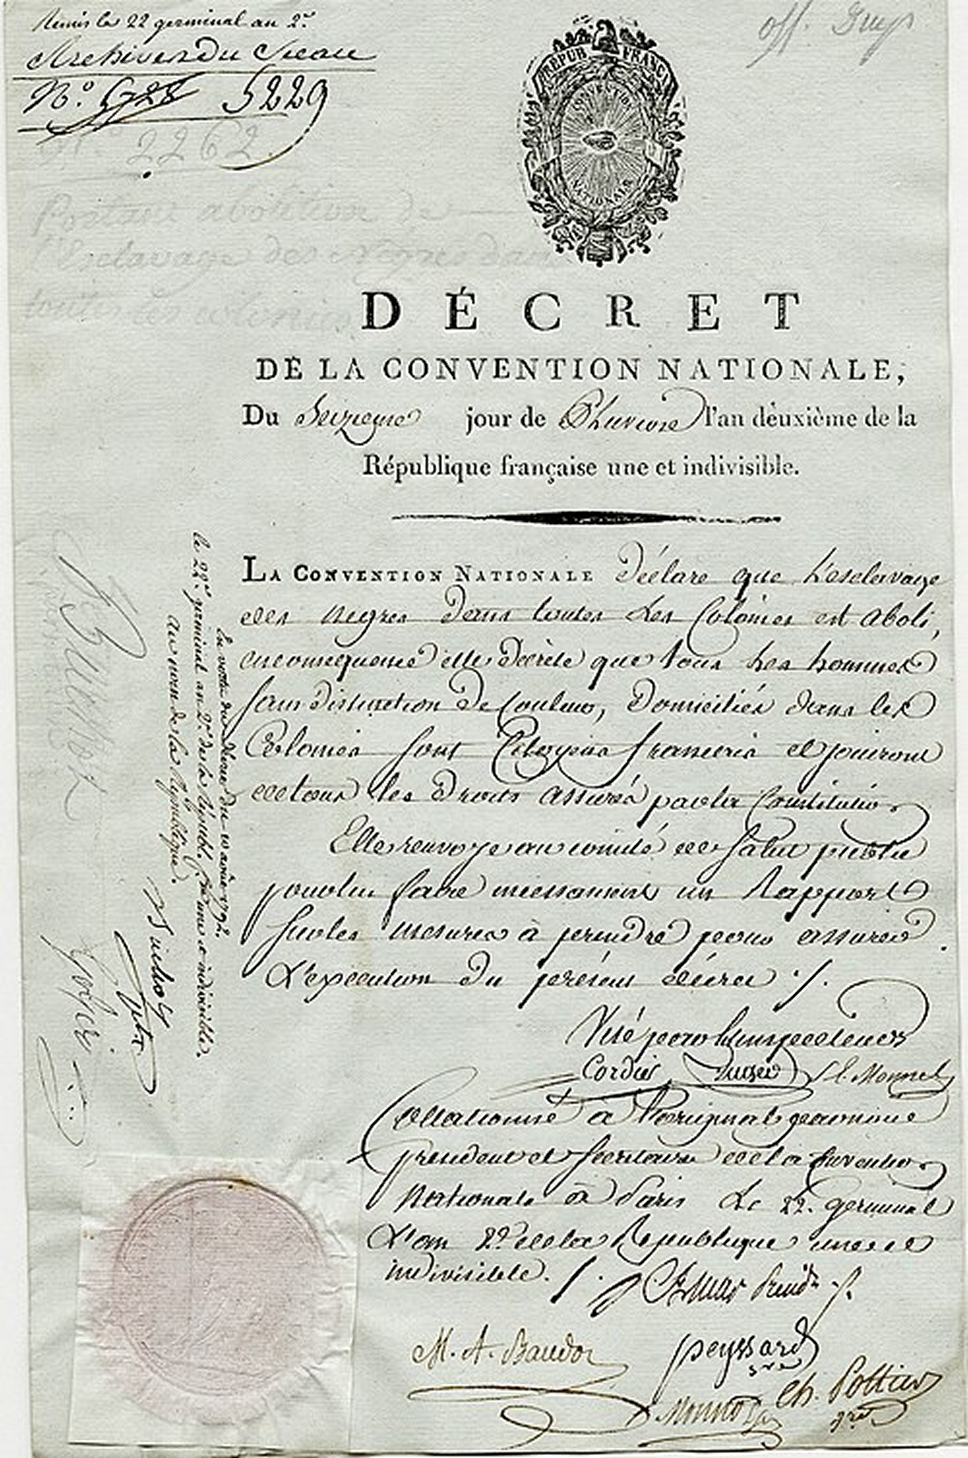 Remis le 22 germinal an 2.e
Archives du Sceau
N.o 5728 5229
N.o 2262
Portant abolition de
l'Esclavage des nègres dans
toutes les colonies
RÉPUB FRANÇ
CONVENTION
NATIONALE
DÉCRET
DE LA CONVENTION NATIONALE,
Du Seizieme jour de Pluviose l'an deuxième de la
République française une et indivisible.
LA CONVENTION NATIONALE déclare que l'esclavage
des negres dans toutes les Colonies est aboli,
en consequence elle décrète que tous les hommes
sans distinction de Couleur, Domiciliés dans les
Colonies sont Citoyens francais et jouiront
de tous les Droits assurés par la Constitution.
Elle renvoye au comité de Salut public
pour lui faire incessament un Rapport
sur les mesures à prendre pour assurer
L'execution du présent décret ./.
Visé par les inspecteurs
Cordier S. E. Monnel
Collationné à l'original par nous
president et Secretaires de la Convention
Nationale à Paris le 22. germinal
L'an 2.e de la Republique une et
indivisible. /.
Amar Presid.t
M. A. Baudot
peyssard
Monnot Ch. Pottier
En vertu du décret du 10 aout 1792.
le 22.e germinal an 2.e de la Républ. française une et indivisible.
au nom de la République.
Buchot
Gohier